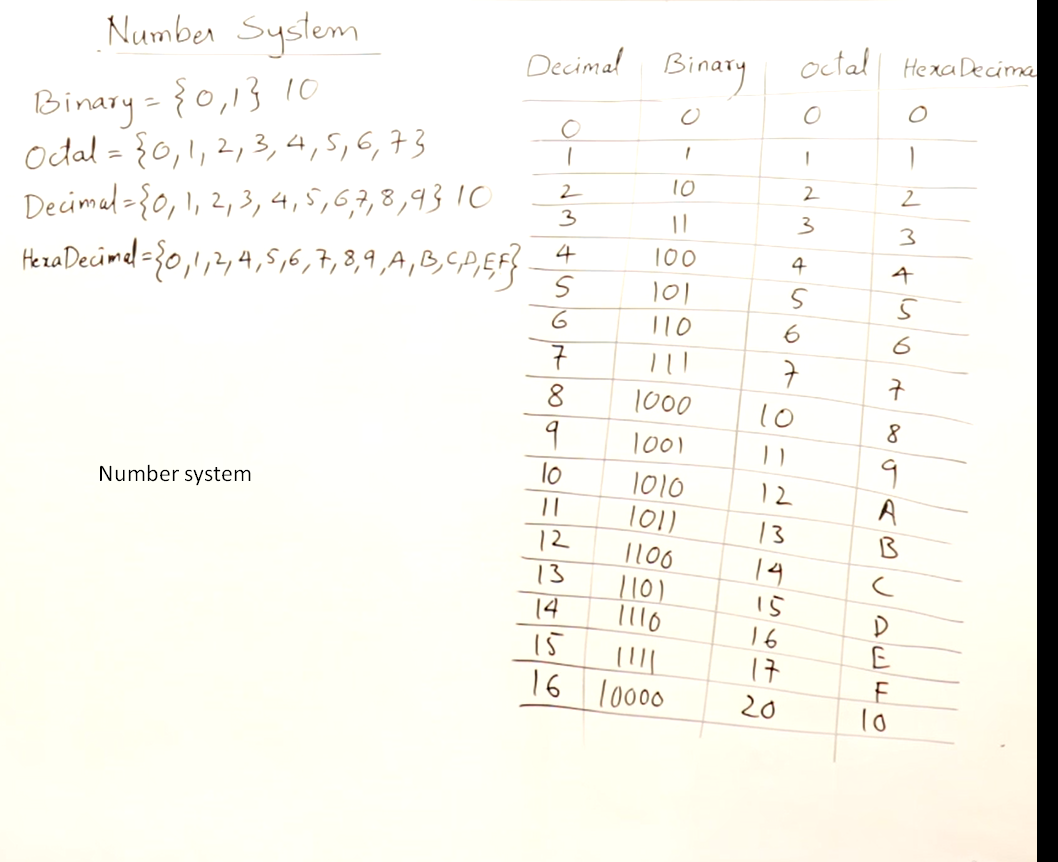 Number System
Binary = {0,1} 10
Octal = {0, 1, 2, 3, 4, 5, 6, 7}
Decimal = {0, 1, 2, 3, 4, 5, 6, 7, 8, 9} 10
HexaDecimal = {0, 1, 2, 4, 5, 6, 7, 8, 9, A, B, C, D, E, F}
Number system
Decimal Binary Octal HexaDecima
0 0 0 0
1 1 1 1
2 10 2 2
3 11 3 3
4 100 4 4
5 101 5 5
6 110 6 6
7 111 7 7
8 1000 10 8
9 1001 11 9
10 1010 12 A
11 1011 13 B
12 1100 14 C
13 1101 15 D
14 1110 16 E
15 1111 17 F
16 10000 20 10